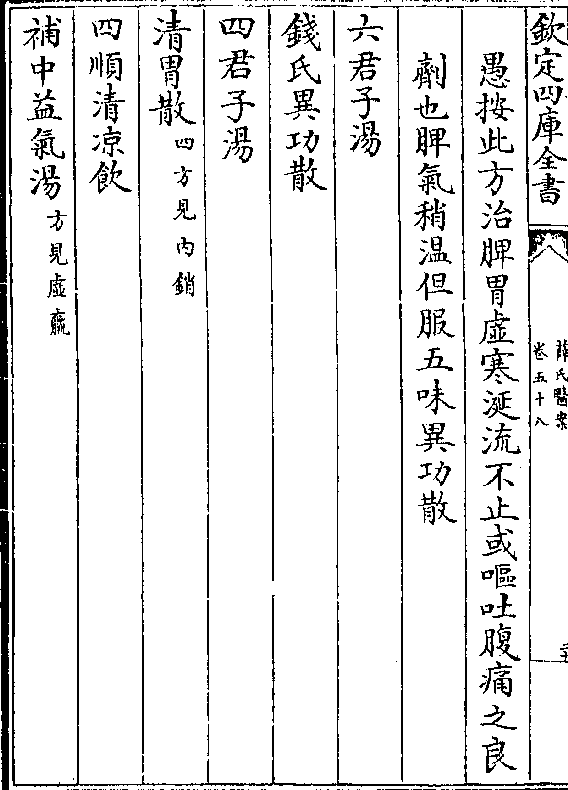 欽定四庫全書
薛氏醫案
卷五十八
愚按此方治脾胃虛寒涎流不止或嘔吐腹痛之良
劑也脾氣稍温但服五味異功散
六君子湯
錢氏異功散
四君子湯
清胃散四方見内銷
四順清凉飲
補中益氣湯方見虛羸